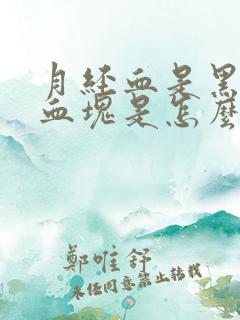 月经血是黑
血块是怎麽
鄭唯舒
未经同意禁止转载